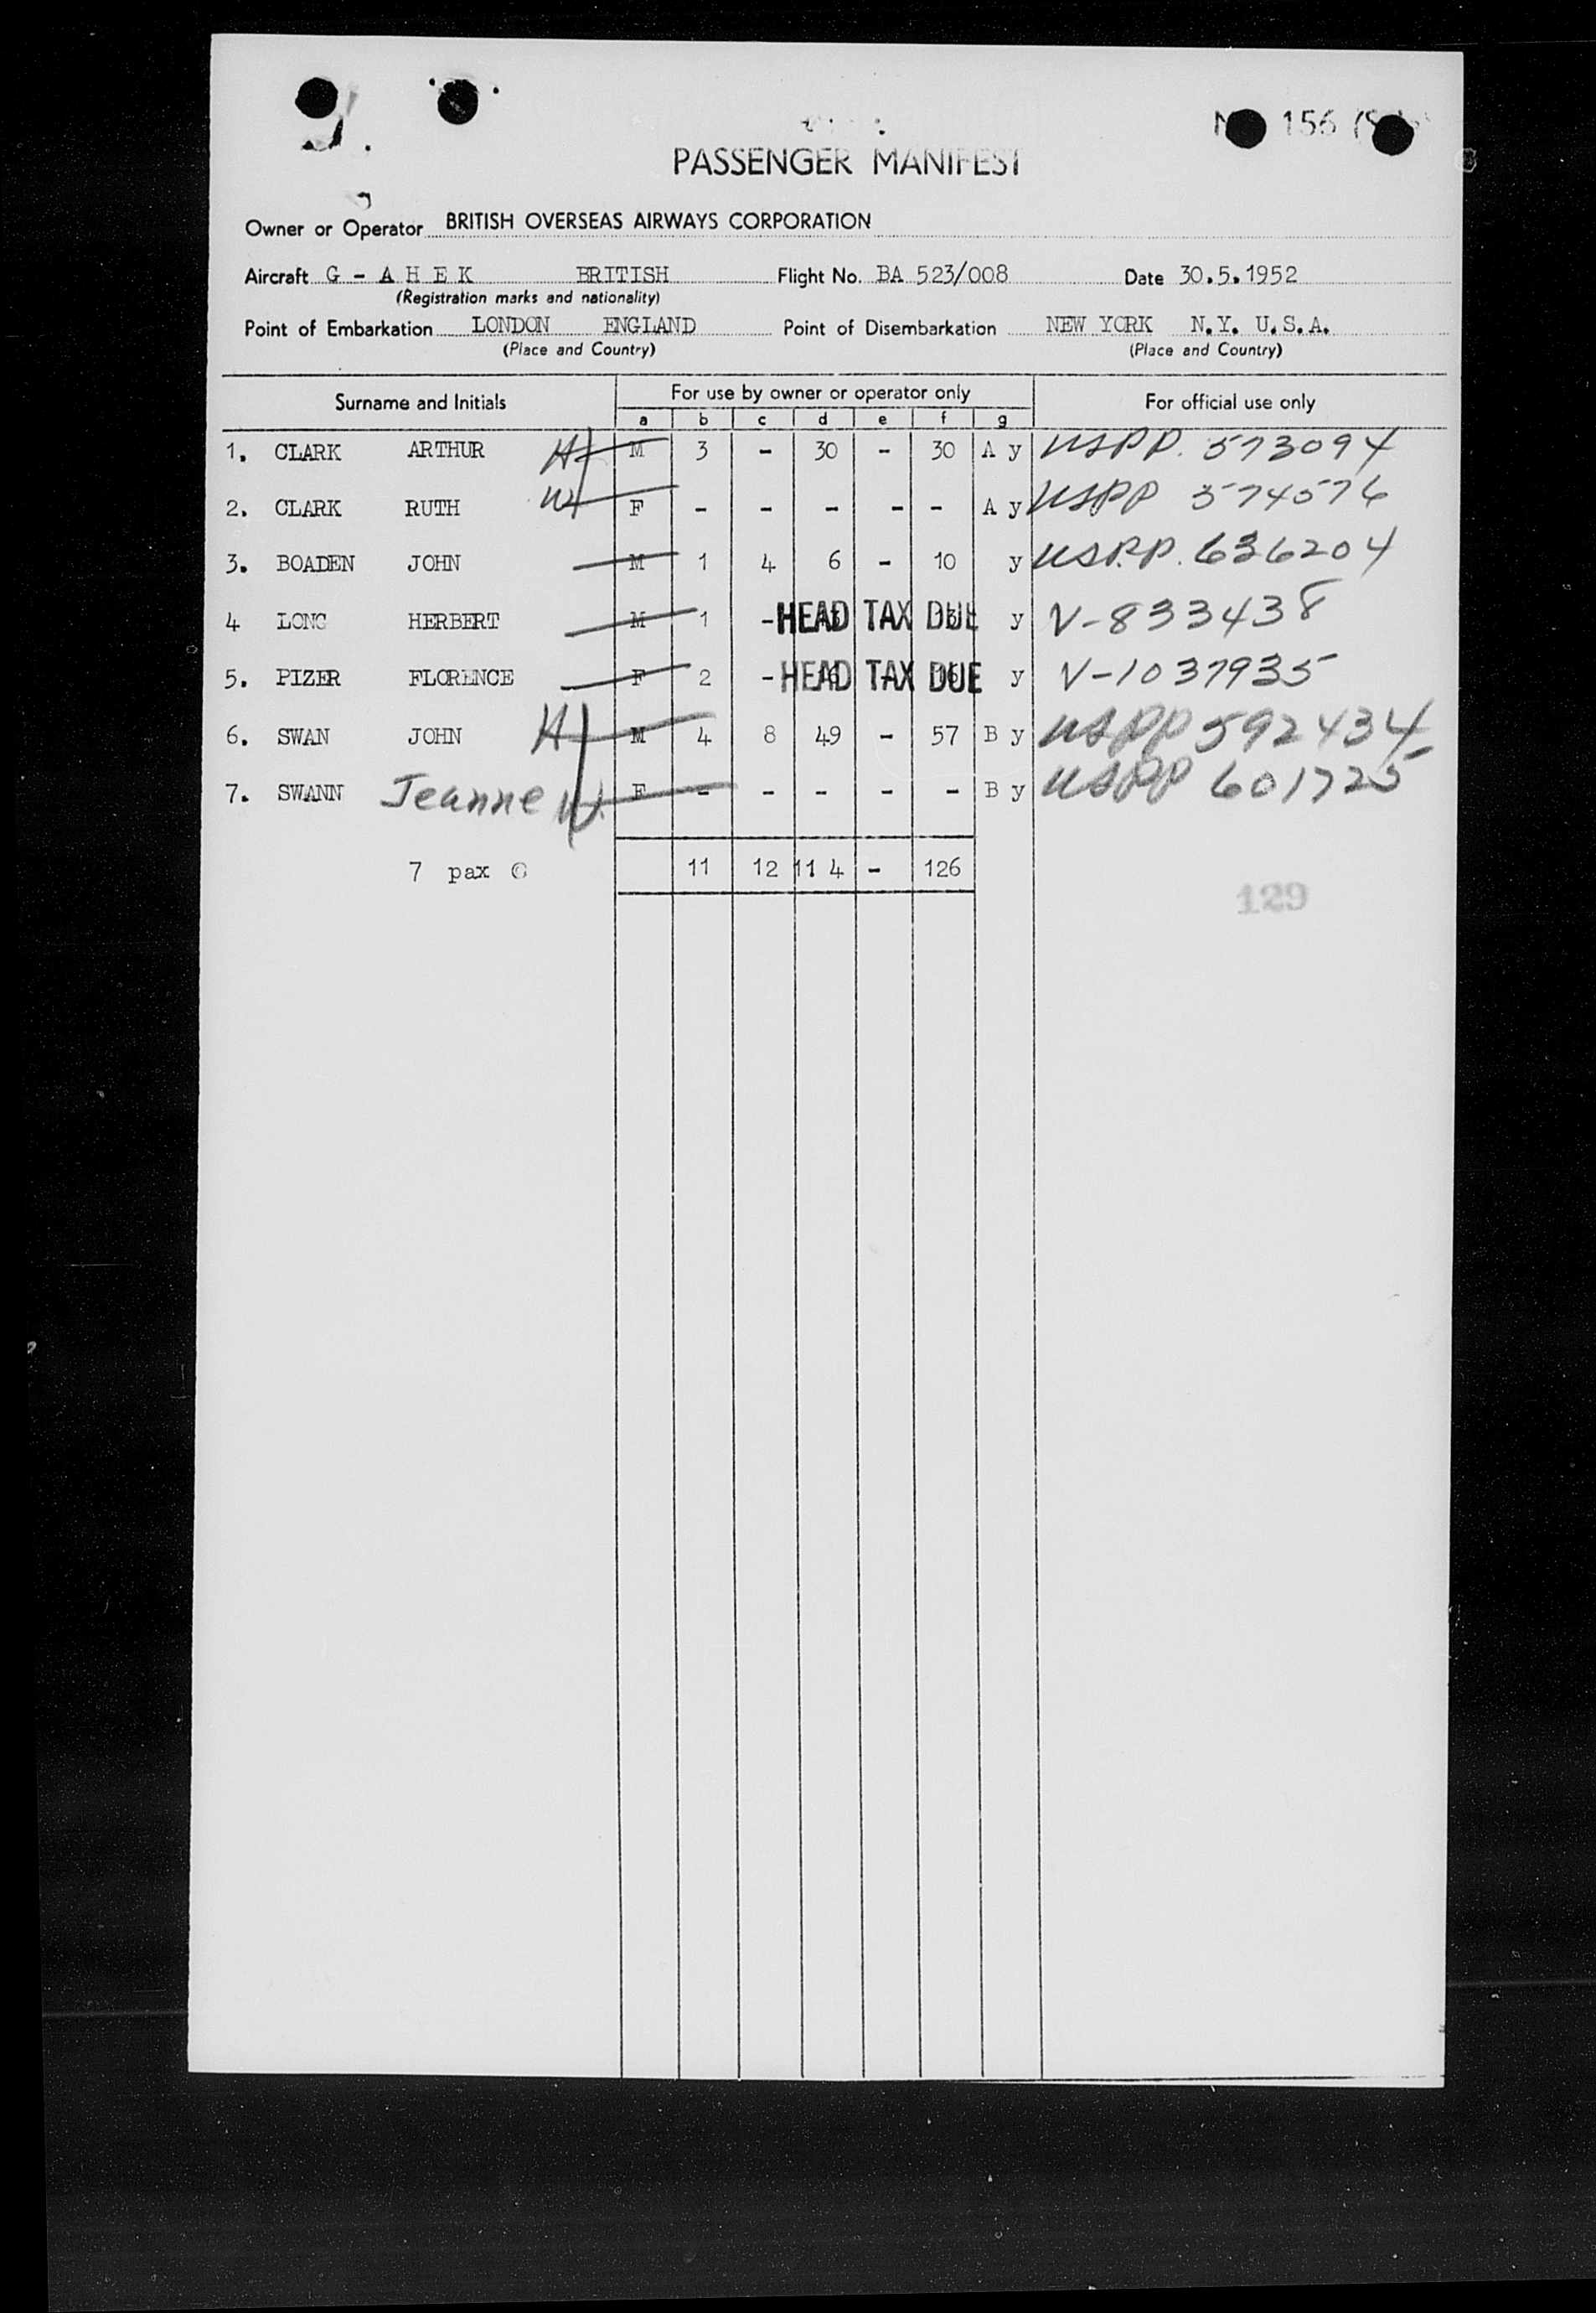 156
PASSENGER MANIFEST
Owner or Operator BRITISH OVERSEAS AIRWAYS CORPORATION
Aircraft G - A H E K BRITISH Flight No. BA 523/008 Date 30.5.1952
(Registration marks and nationality)
Point of Embarkation LONDON ENGLAND Point of Disembarkation NEW YORK N.Y. U.S.A.
(Place and Country) (Place and Country)
Surname and Initials For use by owner or operator only For official use only
a b c d e f g
1. CLARK ARTHUR H M 3 - 30 - 30 A y USPP. 573094
2. CLARK RUTH W F - - - - - A y USPP 574576
3. BOADEN JOHN M 1 4 6 - 10 y USP.P. 636204
4 LONG HERBERT M 1 - HEAD TAX DUE y V-833438
5. PIZER FLORENCE F 2 - HEAD TAX DUE y V-1037935
6. SWAN JOHN H M 4 8 49 - 57 B y USPP 592434
7. SWANN Jeanne W. F - - - - - B y USPP 601725
7 pax 11 12 11 4 - 126
129